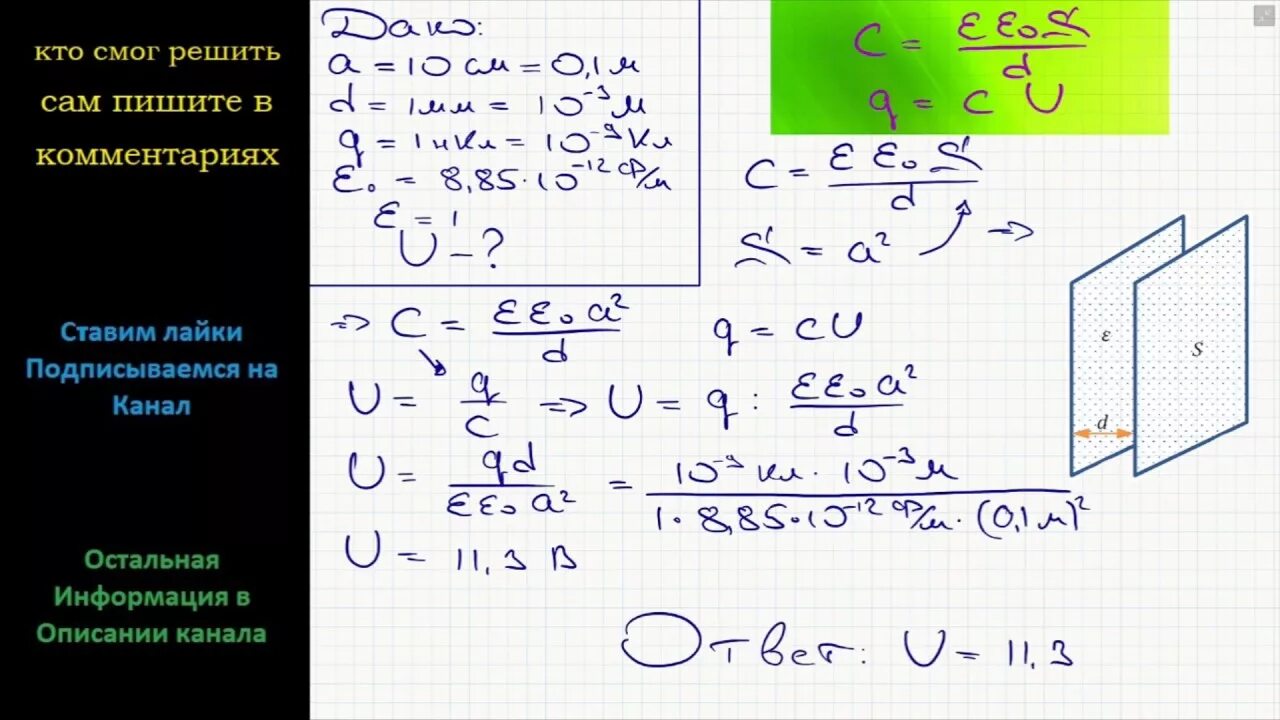 кто смог решить
сам пишите в
комментариях
Ставим лайки
Подписываемся на
Канал
Остальная
Информация в
Описании канала
Дано:
a = 10 см = 0,1 м
d = 1 мм = 10⁻³ м
q = 1 нКл = 10⁻⁹ Кл
ε₀ = 8,85·10⁻¹² Ф/м
ε = 1
U – ?
C = εε₀S / d
q = CU
C = εε₀S / d
S = a² ⇒
⇒ C = εε₀a² / d q = CU
U = q / C ⇒ U = q : εε₀a² / d
U = qd / εε₀a² = 10⁻⁹ Кл · 10⁻³ м / 1·8,85·10⁻¹² Ф/м · (0,1 м)²
U = 11,3 В
Ответ: U = 11,3
ε
S
d